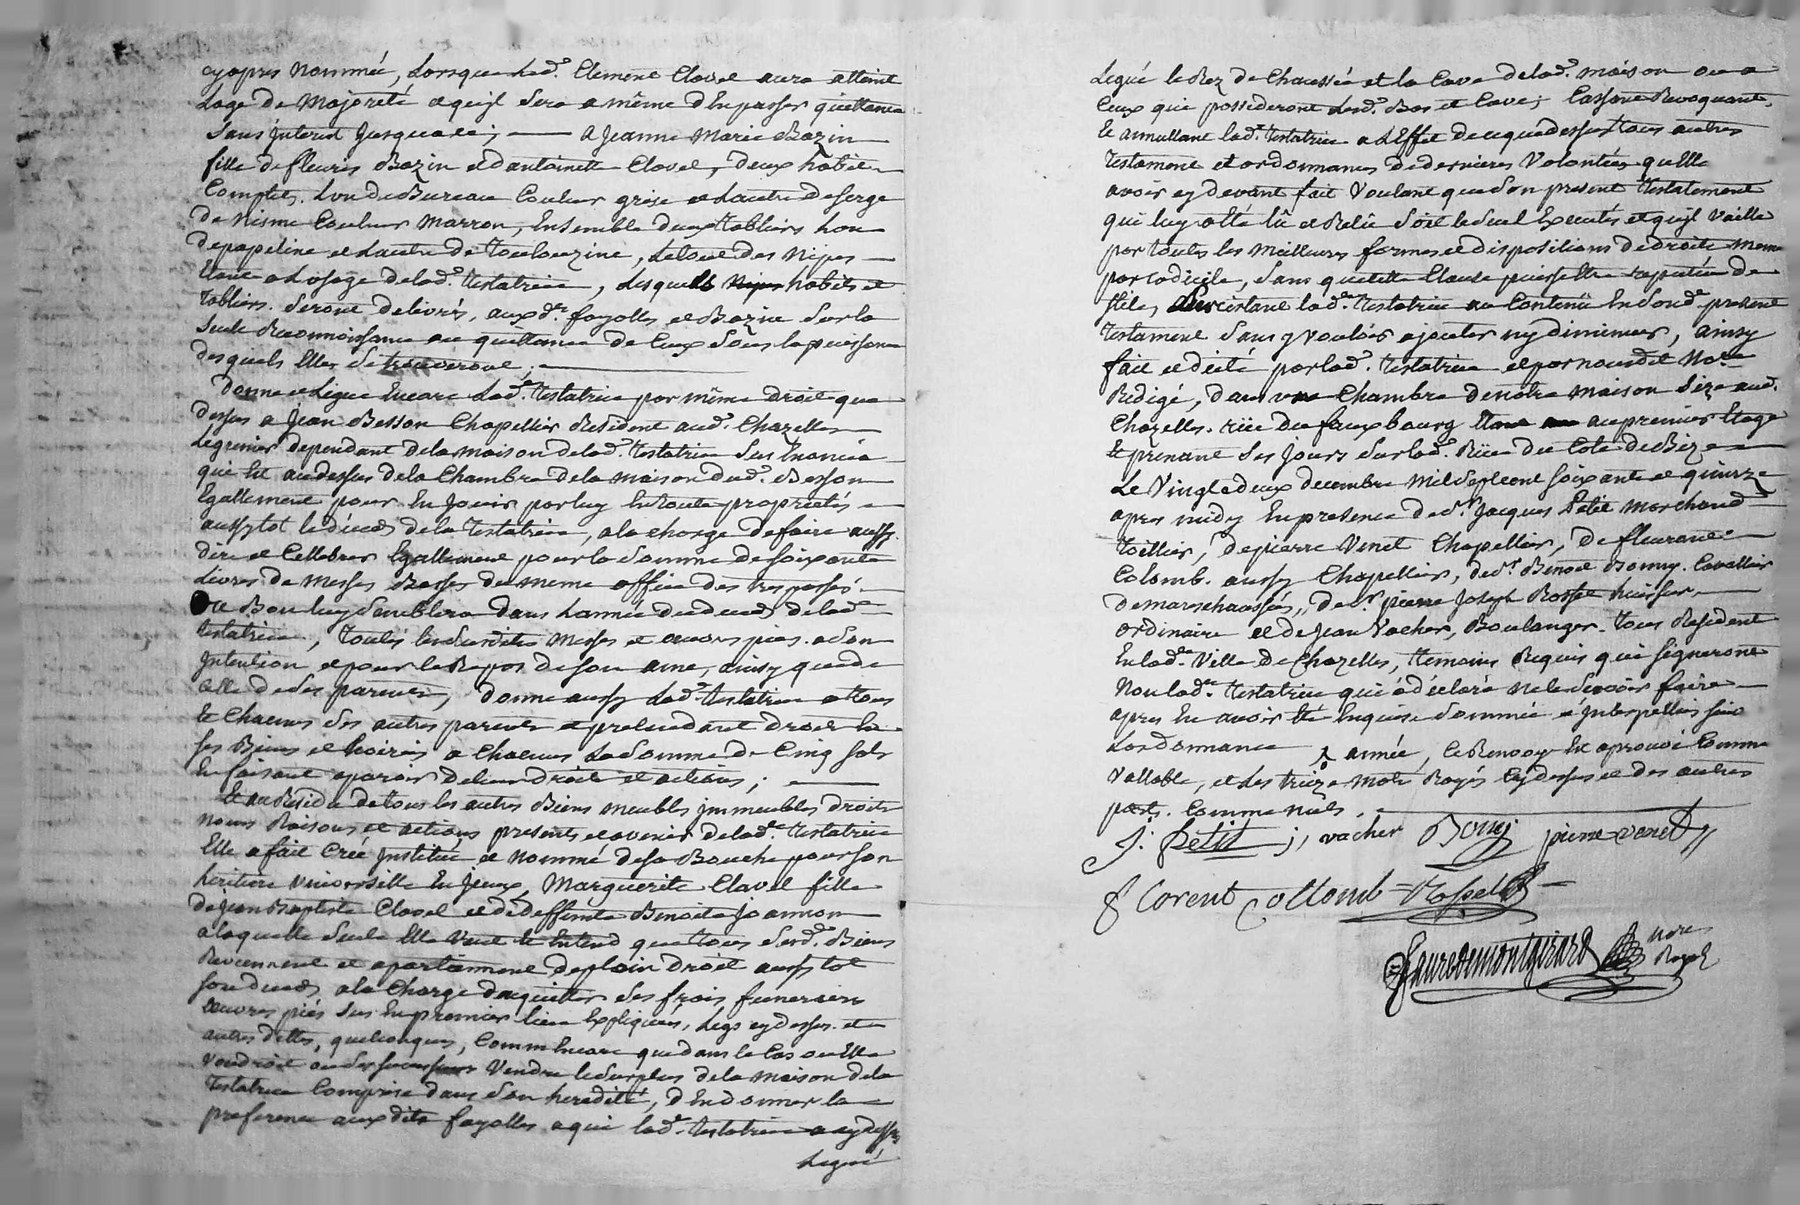 cyapres nommée, Lorsque Led.t Clement Clavel aura atteint
Lage de majoreté et quil sera a même d'En passer quittance
Sans jnterest jusqualé; — A Jeanne Marie Bazin
fille de fleuris Bazin et dantoinette Clavel, deux habits
Complets. Lun de Bureau Couleur grise et Lautre de serge
de nisme Couleur Marron, Ensemble deux tabliers Lun
depapeline et Lautre de toulouzine, Letout des nipes
Etant a Lusage de lad.e testatrice, Lesquels nipes habits et
tabliers. Seront delivrés, auxd.tes fayolles et Bazin Sur la
Seule Reconnoissance ou quittance de Ceux Sous la puissance
desquels Elles se trouveront;
donne et Legue Encore Lad.e testatrice par même droit que
dessus a Jean Besson Chapellier Resident aud.t Chazelles
Le grenier dependant de la maison de lad.e testatrice Sus Enoncée
qui Est audessus de la Chambre de la maison dud.t Besson
Egallement pour En Jouir par luy En toute proprietés
aussytot le déces de la testatrice, a la charge de faire aussy
dire et Cellebrer Egallement pour la Somme de soixante
Livres de Messes Basses du meme office des trespassés
et Bon luy Semblera dans Lannée du deces de lad.e
testatrice, toutes lesSusdites Messes et oeuvres pies. a Son
jntention et pour le Repos de son ame, ainsy que de
Celle de Ses parents, donne aussy Lad.e testatrice a tous
Et Chacuns Ses autres parents et pretendant droit En
Ses Biens et hoiries a Chacuns La Somme de Cinq Sols
En faisant aparoir de leur droit et actions;
Et au Residu de tous les autres Biens meubles jmmeubles droits
noms Raisons et actions presents et avenir de lad.e testatrice
Elle a fait Créé jnstitué et nommé de sa Bouche pour son
heritiere universelle En Jeux, Marguerite Clavel fille
de Jean Baptiste Clavel et de deffunte Benoite Joannon
a laquelle Seule Elle Veut Et Entend que tous Sesd.ts Biens
Reviennent et apartiennent de plein droit aussytot
Son deces, a la Charge dacquitter Ses frais funeraires
oeuvres piés Sus En premier lieu Expliquées, Legs cydessus. et
autres dettes, quelconques, Comm'Encore que dans le Cas ou Elle
Voudroit ou Ses Successeurs Vendre le Surplus de la maison de la
testatrice Comprise dans Son heredité, d'En donner la
preference aux dits fayolles a qui lad.e testatrice a cydessus
Legué
Legué le Rez de Chaussée et la Cave de lad.e maison ou a
Ceux qui possederont Lesd.ts Bas et Cave; Cassant Revoquant
Et annullant lad.e testatrice a L'Effet de ce que dessus tous autres
testament et ordonnances de dernieres Volontées qu'Elle
avoir cydevant fait Voulant que Son present testatement
qui luy a Eté lû et Relû Soit le Seul Executés et quil Vaille
par toutes les Meilleurs formes et dispositions de droits meme
par Codicile, Sans que cette Clause puisse Etre reputée de
stile, lad.e testatrice au Contenü En Sond.t present
testament Sans y vouloir ajouter ny diminuer, ainsy
fait et dicté par lad.e testatrice et par nousdit No.re
Redigé, dans une Chambre de notre maison Size aud.t
Chazelles. rüe du fauxbourg Etant au premier Etage
Et prenant Ses Jours Sur lad.e Rüe du Coté de Bize
Le Vingt deux decembre mil Sept cent soixante et quinze
apres midy En presence de S.r Jacques Petit Marchand
toillier, de pierre Venet Chapellier, de fleurant
Colomb. aussy Chapellier, de S.r Benoit Bonny. Cavallier
de marechaussée, de S.r pierre Joseph Rosset huissier
ordinaire et de Jean Vacher, Boulanger. tous Resident
En lad.e Ville de Chazelles, temoins Requis qui Signeront
Non lad.e testatrice qui a déclaré ne le Savoir faire
apres En avoir Eté Enquise Sommée et jnterpellée Suiv.t
Lordonnance année, Ce Renvoy Est aprouvé Comme
Vallable, et Les treize mots Rayés cydessus et des autres
parts. Comme nuls.
J. Petit j, vacher Bony pierre venet
florent Collomb Rosset
Faure de montgirard No.re Royal